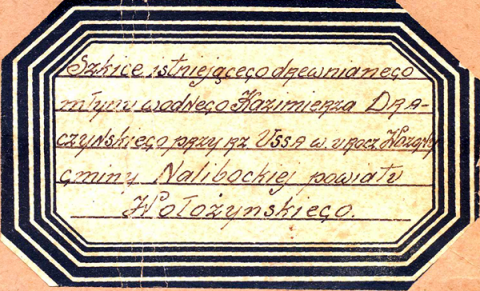 Szkice istniejącego drewnianego
młynu wodnego Kazimierza DRA-
CZYŃSKIEGO przy rz USSA w urocz
gminy Nalibockiej powiatu
Wołożyńskiego.